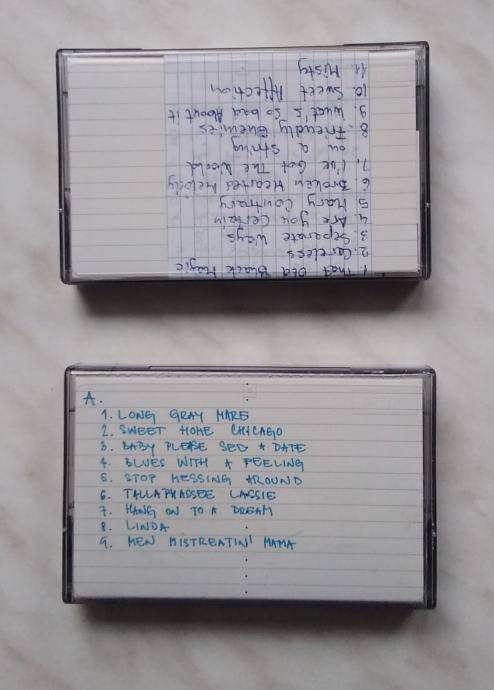 1. That Old Black Magic
2. Careless
3. Separate Ways
4. Are you Certain
5. Mary Contrary
6. Broken Hearted Melody
7. I've Got The World
on a string
8. Friendly Enemies
9. What's So Bad About it
10. Sweet Affection
11. Misty
A.
1. LONG GRAY MARE
2. SWEET HOME CHICAGO
3. BABY PLEASE SED A DATE
4. BLUES WITH A FEELING
5. STOP MESSING AROUND
6. TALLAPHASSEE LASSIE
7. HANG ON TO A DREAM
8. LINDA
9. MEN MISTREATIN' MAMA